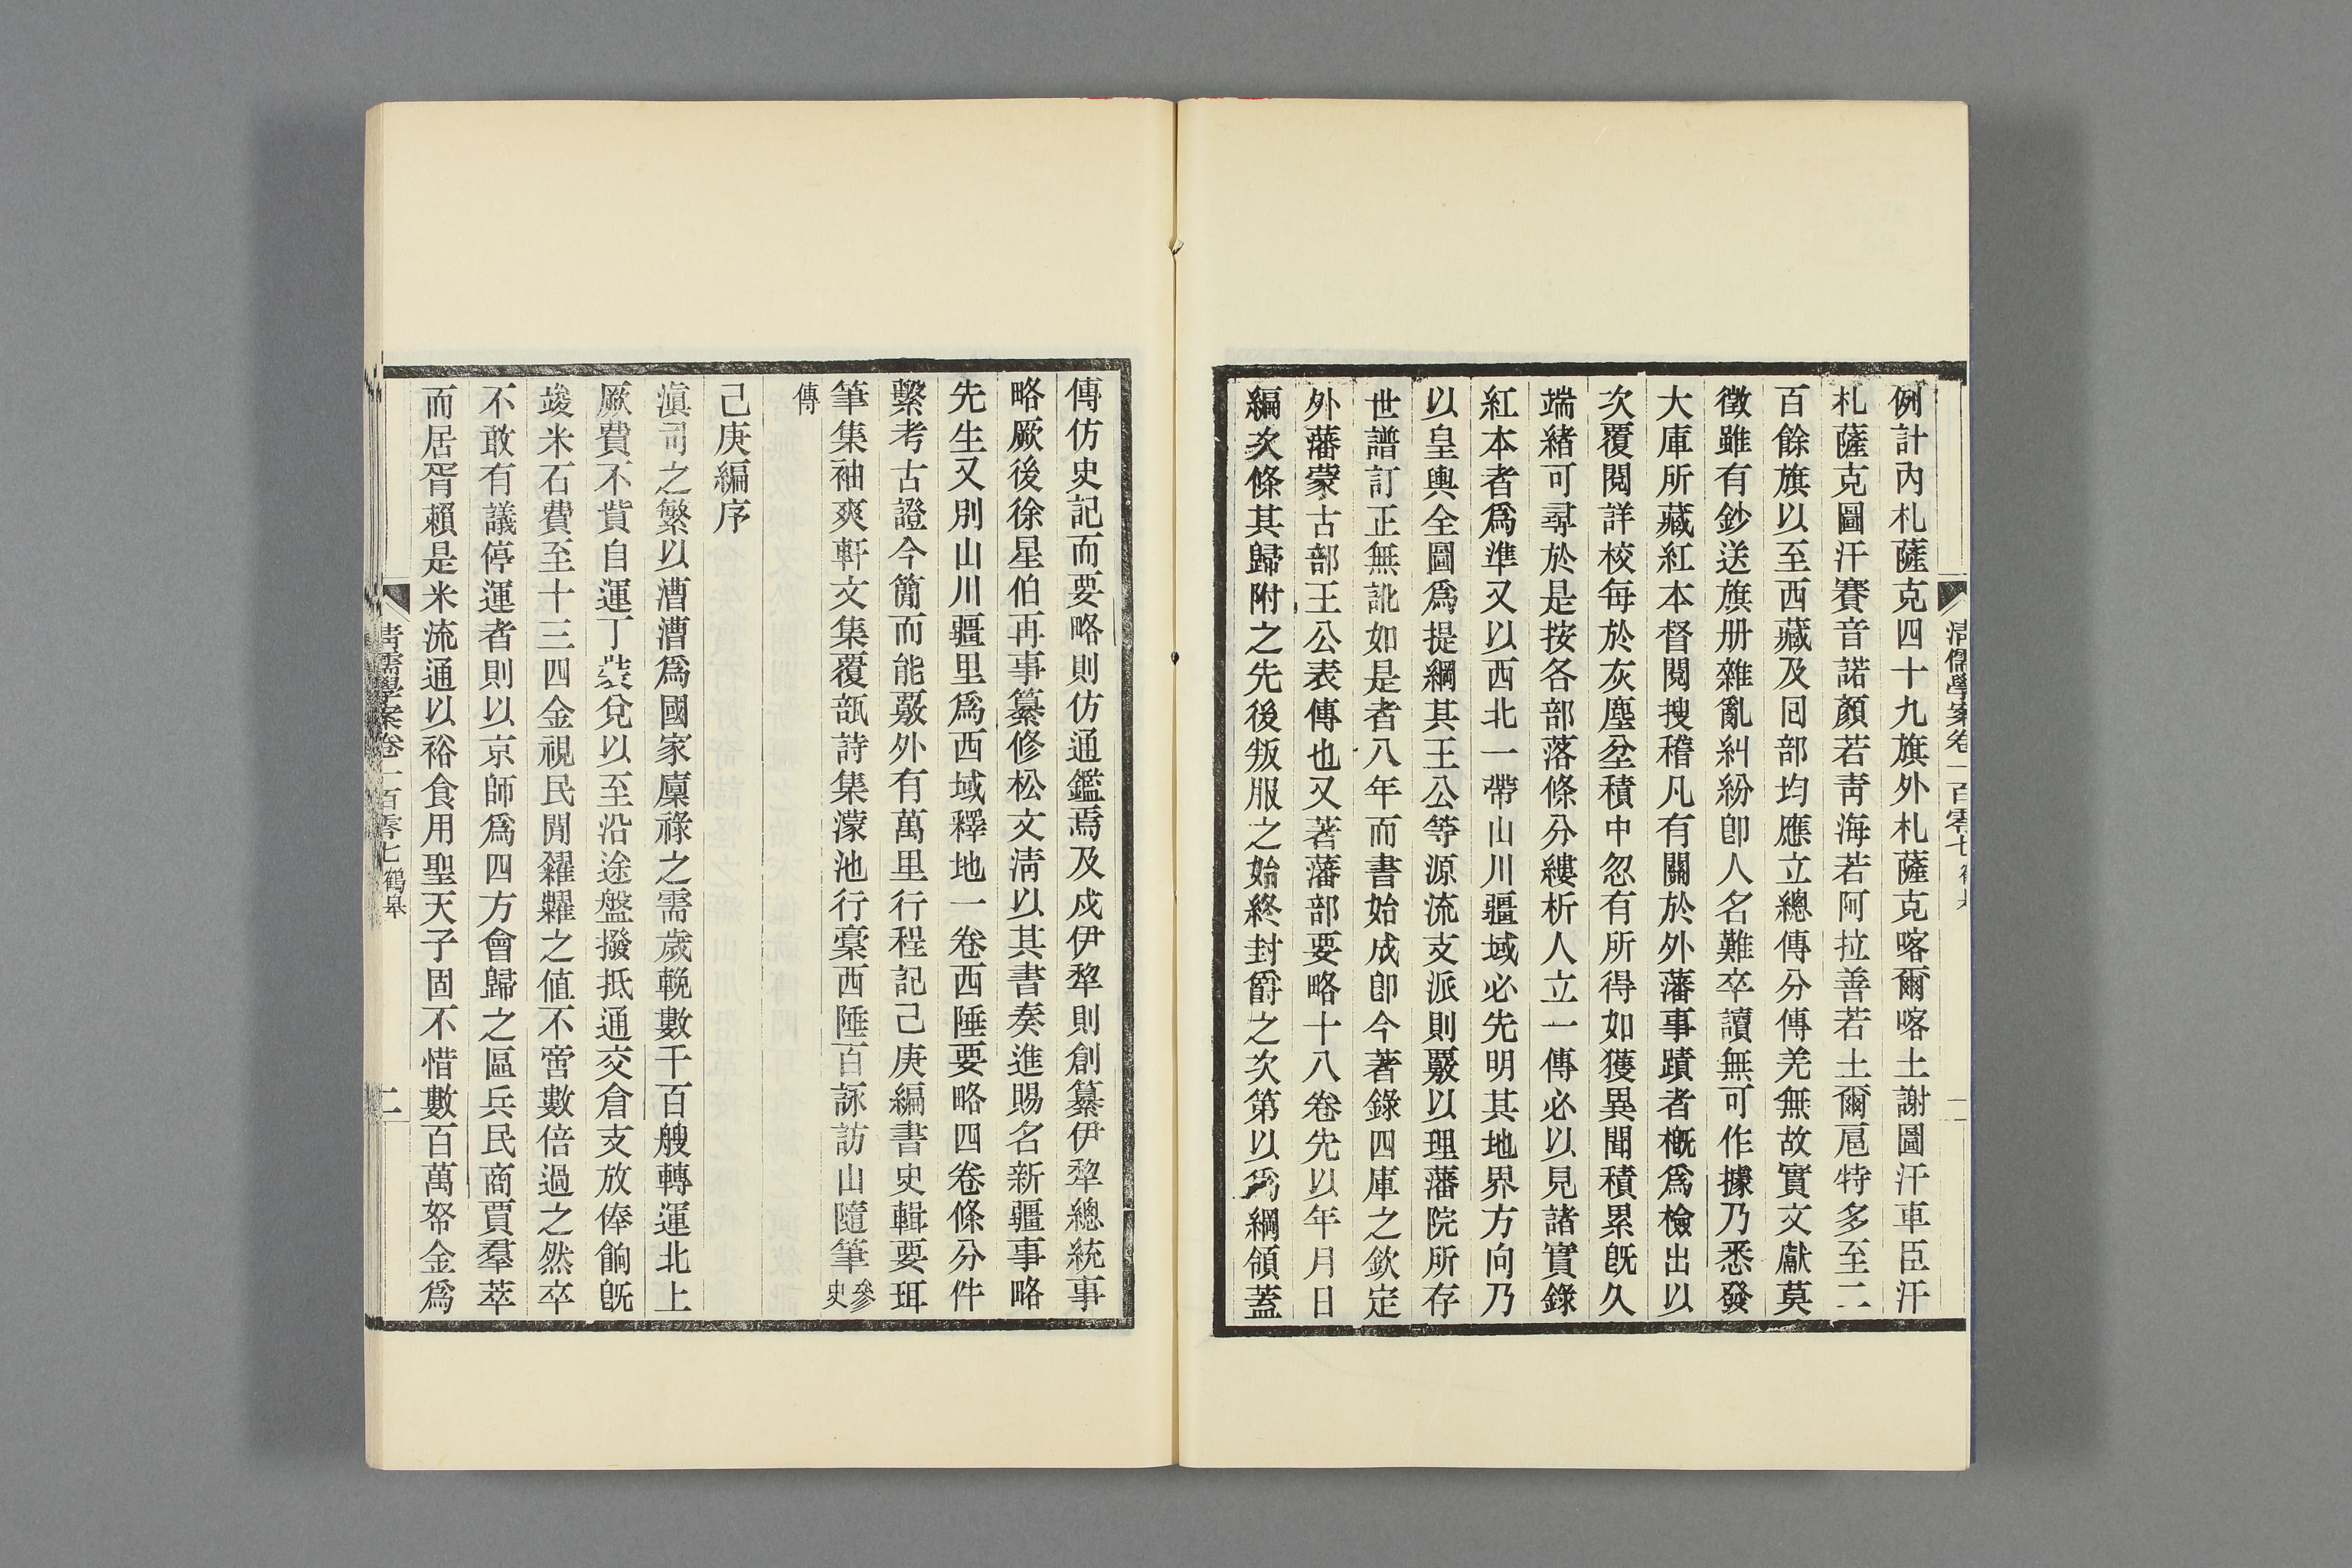 例計內札薩克四十九旗外札薩克喀爾喀土謝圖汗車臣汗
札薩克圖汗賽音諾顏若靑海若阿拉善若土爾扈特多至二
百餘旗以至西藏及回部均應立總傳分傳羌無故實文獻莫
徵雖有鈔送旗册雜亂糾紛卽人名難卒讀無可作據乃悉發
大庫所藏紅本督閱搜稽凡有關於外藩事蹟者槪爲檢出以
次覆閱詳校每於灰塵坌積中忽有所得如獲異聞積累旣久
端緒可尋於是按各部落條分縷析人立一傳必以見諸實錄
紅本者爲準又以西北一帶山川疆域必先明其地界方向乃
以皇輿全圖爲提綱其王公等源流支派則覈以理藩院所存
世譜訂正無訛如是者八年而書始成卽今著錄四庫之欽定
外藩蒙古部王公表傳也又著藩部要略十八卷先以年月日
編次條其歸附之先後叛服之始終封爵之次第以爲綱領蓋
淸儒學案卷一百零七
二
傳仿史記而要略則仿通鑑焉及戍伊犂則創纂伊犂總統事
略厥後徐星伯再事纂修松文淸以其書奏進賜名新疆事略
先生又別山川疆里爲西域釋地一卷西陲要略四卷條分件
繫考古證今簡而能覈外有萬里行程記己庚編書史輯要珥
筆集袖爽軒文集覆瓿詩集濛池行稾西陲百詠訪山隨筆參史
傳
己庚編序
滇司之繁以漕漕爲國家廩祿之需歲輓數千百艘轉運北上
厥費不貲自運丁裝兌以至沿途盤撥抵通交倉支放俸餉旣
竣米石費至十三四金視民閒糴糶之値不啻數倍過之然卒
不敢有議停運者則以京師爲四方會歸之區兵民商賈羣萃
而居胥賴是米流通以裕食用聖天子固不惜數百萬帑金爲
淸儒學案卷一百零七 鶴皋
二